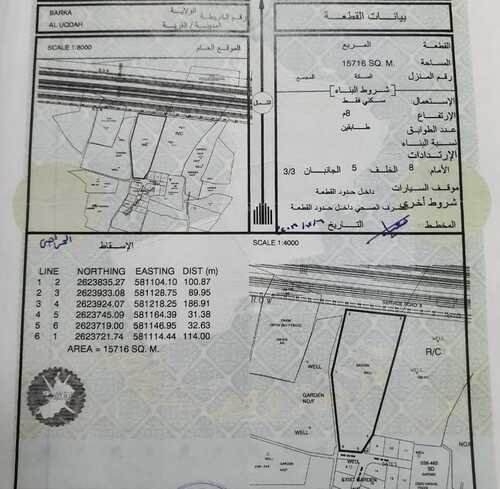 BARKA
الولاية
AL UQDAH
المدينة / القرية
رقم الخريطة
SCALE 1:8000
الموقع العام
بيانات القطعة
القطعة
المربع
المساحة
15716 SQ. M.
رقم المنزل
السكة
المجمع
شروط البناء
الإستعمال
سكني فقط
الإرتفاع
8م
عدد الطوابق
طابقين
نسبة البناء
الإرتدادات
الأمام 8 الخلف 5 الجانبان 3/3
موقف السيارات
داخل حدود القطعة
شروط أخرى
الصحي داخل حدود القطعة
المخطط
التاريخ
الشمال
الإسقاط
LINE NORTHING EASTING DIST (m)
1 2 2623835.27 581104.10 100.87
2 3 2623933.08 581128.75 89.95
3 4 2623924.07 581218.25 186.91
4 5 2623745.09 581164.39 31.38
5 6 2623719.00 581146.95 32.63
6 1 2623721.74 581114.44 114.00
AREA = 15716 SQ. M.
SCALE 1:4000
ROW
SERVICE ROAD
WELL
R/C
GARDEN
WELL
WELL